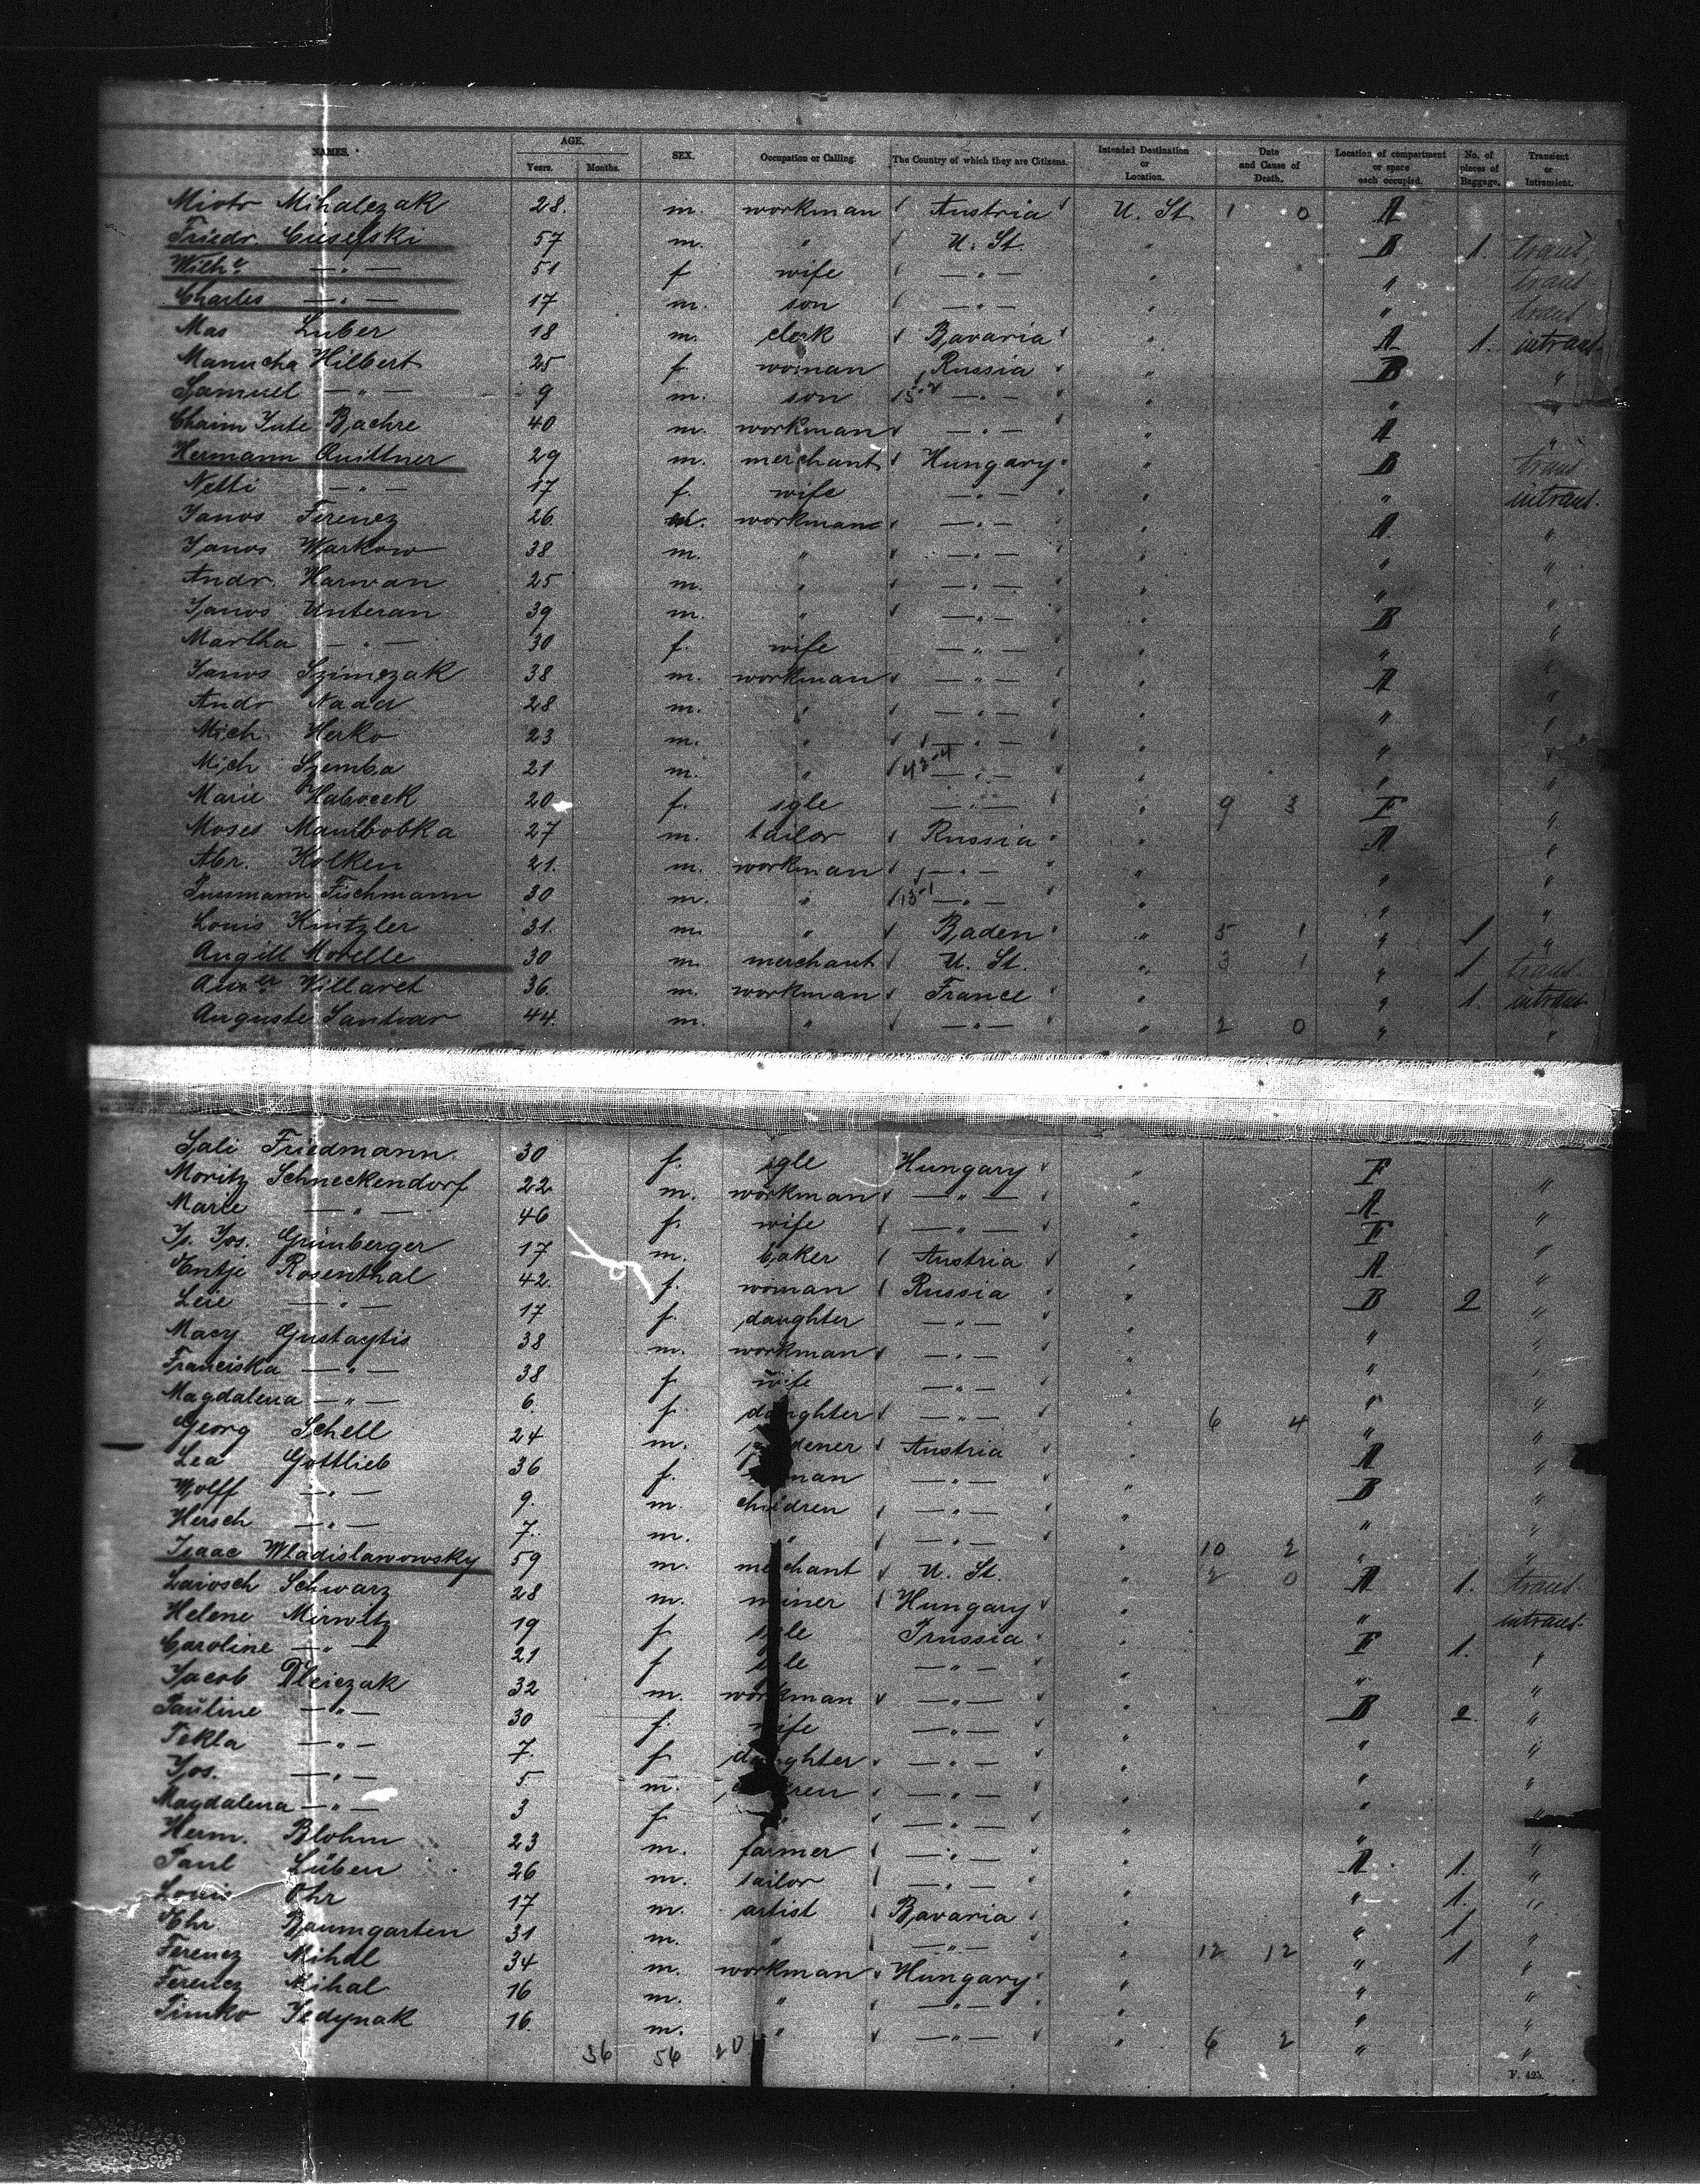 NAMES. AGE. Years. Months. SEX. Occupation or Calling. The Country of which they are Citizens. Intended Destination or Location. Date and Cause of Death. Location of compartment or space each occupied. No. of pieces of Baggage. Transient or Intransient.
Miotr Mihalczak 28. m. workman Austria U. St. 1 0 A
Friedr. Cusefski 57 m. " U. St. " B 1. trans.
Wilhe —"— 51 f wife —"— " " trans
Charles —"— 17 m. son —"— " " trans
Max Luber 18 m. clerk Bavaria " A 1. intrans.
Manucha Hilbert 25 f. woman Russia " B "
Samuel —"— 9 m. son 5-2 —"— " " "
Chaim Jute Bachre 40 m. workman —"— " A "
Hermann Quittner 29 m. merchant Hungary " B trans
Netti —"— 17 f. wife —"— " " intrans.
Janos Ferencz 26 m. workman —"— " A "
Janos Warkow 38 m. " —"— " " "
Andr. Harwan 25 m. " —"— " " "
Janos Unteran 39 m. " —"— " B "
Martha —"— 30 f. wife —"— " " "
Janos Szimczak 38 m. workman —"— " A "
Andr Naad 28 m. " —"— " " "
Mich. Herko 23 m. " —"— " " "
Mich Szemba 21 m. " 42-4 —"— " " "
Marie Habocek 20 f. sgle —"— " 9 3 F "
Moses Maulbobka 27 m. tailor Russia " A "
Abr. Holken 21. m. workman —"— " " "
Sussmann Fischmann 30 m. " 13-1 —"— " " "
Louis Kintzler 31. m. " Baden " 5 1 " 1 "
Augill Morelle 30 m. merchant U. St. " 3 1 " 1 trans.
Villaret 36. m. workman France " " 1. intrans
Auguste Santvar 44. m. " —"— " 2 0 " "
Sali Friedmann 30 f. sgle Hungary " F "
Moritz Schneckendorf 22 m. workman —"— " A "
Marie —"— 46 f. wife —"— " F "
Is. Jos. Grünberger 17 m. baker Austria " A "
Entje Rosenthal 42. f. woman Russia " B 2 "
Leie —"— 17 f. daughter —"— " " "
Macy Gustaytis 38 m. workman —"— " " "
Franciska —"— 38 f. wife —"— " " "
Magdalena —"— 6. f. daughter —"— " 6 4 " "
Georg Schell 24 m. dener Austria " A "
Lea Gottlieb 36 f. man —"— " B "
Wolff —"— 9. m. children —"— " " "
Hersch —"— 7. m. " —"— " 10 2 " "
Isaac Wladislawowsky 59 m. merchant U. St. " 2 0 A 1. trans.
Laiosch Schwarz 28 m. miner Hungary " " intrans.
Helene Mirwitz 19 f sgle Prussia " F 1. "
Caroline —"— 21 f sgle —"— " " "
Jacob Pleiczak 32 m. workman —"— " B 2 "
Pauline —"— 30 f. wife —"— " " "
Tekla —"— 7. f. daughter —"— " " "
Jos. —"— 5 m. children —"— " " "
Magdalena —"— 3 f. " —"— " " "
Herm. Blohm 23 m. farmer —"— " A 1. "
Paul Lüben 26 m. tailor —"— " " 1. "
Louis Ohr 17 m. artist Bavaria " " 1 "
Chr Baumgarten 31 m. " —"— " 12 12 " 1 "
Ferencz Mihal 34 m. workman Hungary " " "
Ferencz Mihal 16 m. " —"— " " "
Timko Jedynak 16. m. " —"— " 6 2 " "
36 56 20
F. 425.